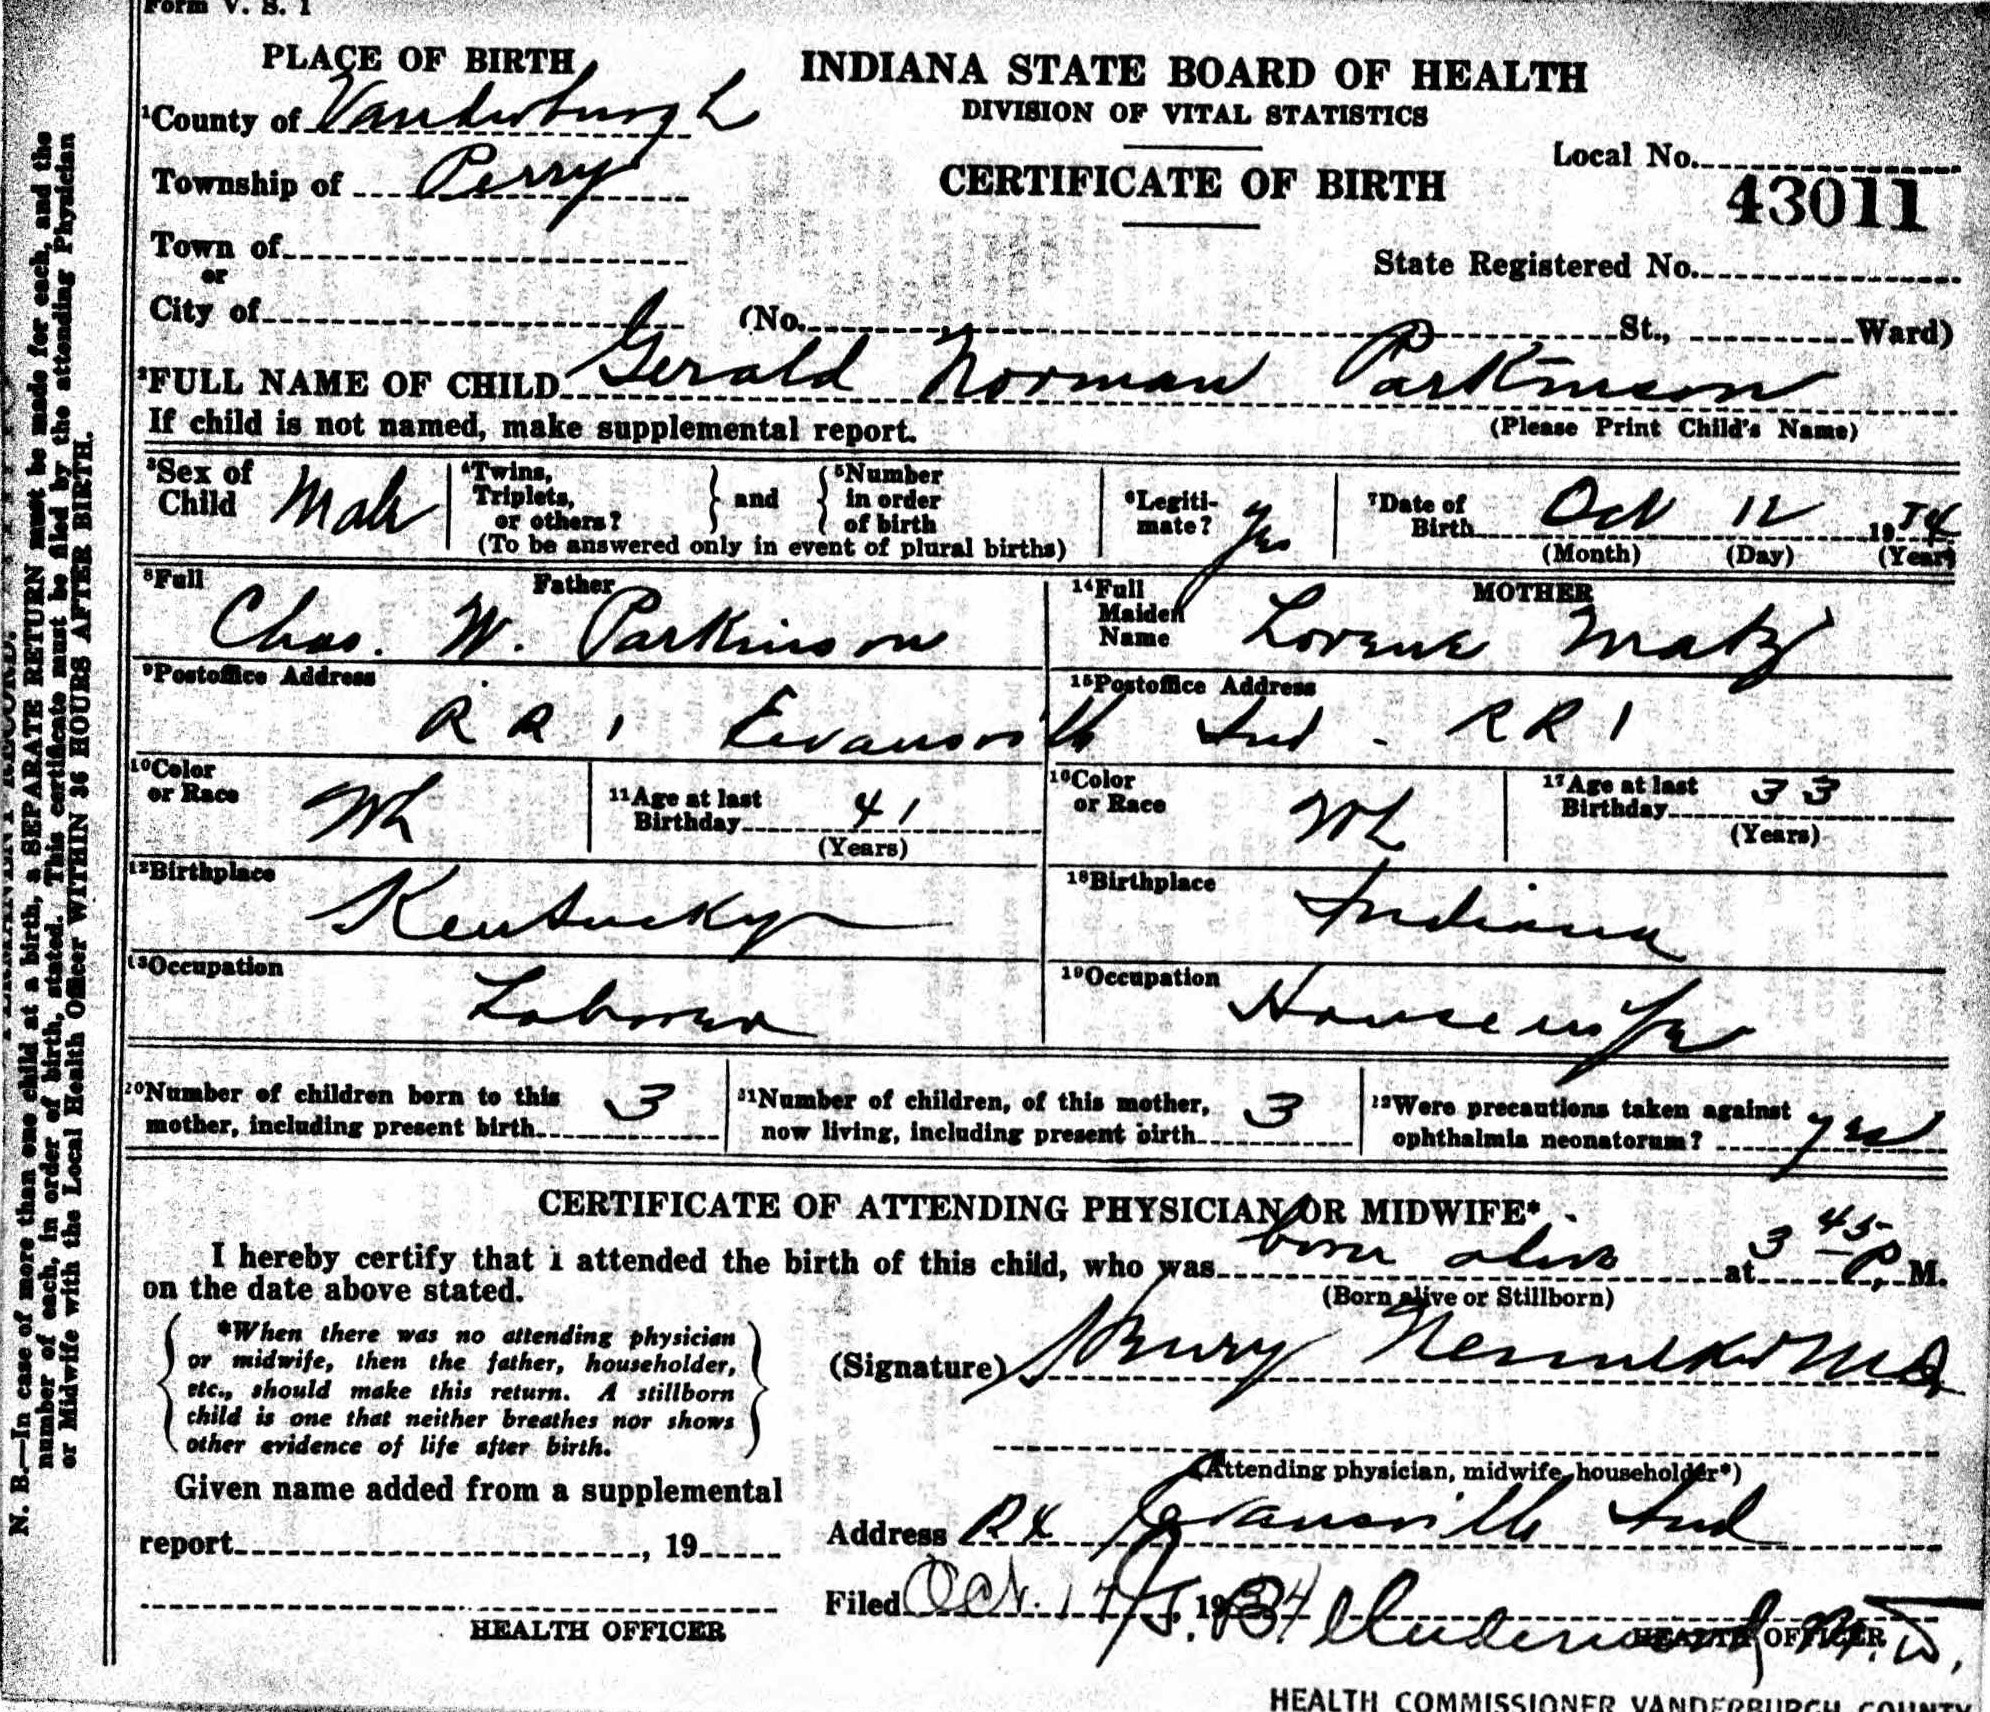 Form V. S. 1
PLACE OF BIRTH
INDIANA STATE BOARD OF HEALTH
DIVISION OF VITAL STATISTICS
CERTIFICATE OF BIRTH
1County of Vanderburgh
Township of Perry
Town of
or
City of
(No. St., Ward)
Local No.
43011
State Registered No.
2FULL NAME OF CHILD Gerald Norman Parkinson
If child is not named, make supplemental report.
(Please Print Child's Name)
3Sex of Child Male
4Twins, Triplets, or others? and 5Number in order of birth
(To be answered only in event of plural births)
6Legiti-mate? Yes
7Date of Birth Oct 12 1934
(Month) (Day) (Year)
8Full Father
Chas. W. Parkinson
14Full Maiden Name MOTHER
Lorene Matz
9Postoffice Address
R R 1 Evansville Ind - R R 1
15Postoffice Address
10Color or Race Wh
11Age at last Birthday 41
(Years)
16Color or Race Wh
17Age at last Birthday 33
(Years)
12Birthplace
Kentucky
18Birthplace
Indiana
13Occupation
Laborer
19Occupation
Housewife
20Number of children born to this mother, including present birth 3
21Number of children, of this mother, now living, including present birth 3
22Were precautions taken against ophthalmia neonatorum? yes
CERTIFICATE OF ATTENDING PHYSICIAN OR MIDWIFE*
I hereby certify that I attended the birth of this child, who was born alive at 3 45 P. M.
on the date above stated.
(Born alive or Stillborn)
*When there was no attending physician
or midwife, then the father, householder,
etc., should make this return. A stillborn
child is one that neither breathes nor shows
other evidence of life after birth.
(Signature) M.D.
(Attending physician, midwife, householder*)
Given name added from a supplemental
report , 19
HEALTH OFFICER
Address Evansville Ind
Filed Oct. 1934
HEALTH OFFICER
HEALTH COMMISSIONER VANDERBURGH COUNTY
N. B.—In case of more than one child at a birth, a SEPARATE RETURN must be made for each, and the
number of each, in order of birth, stated. This certificate must be filed by the attending Physician
or Midwife with the Local Health Officer WITHIN 36 HOURS AFTER BIRTH.